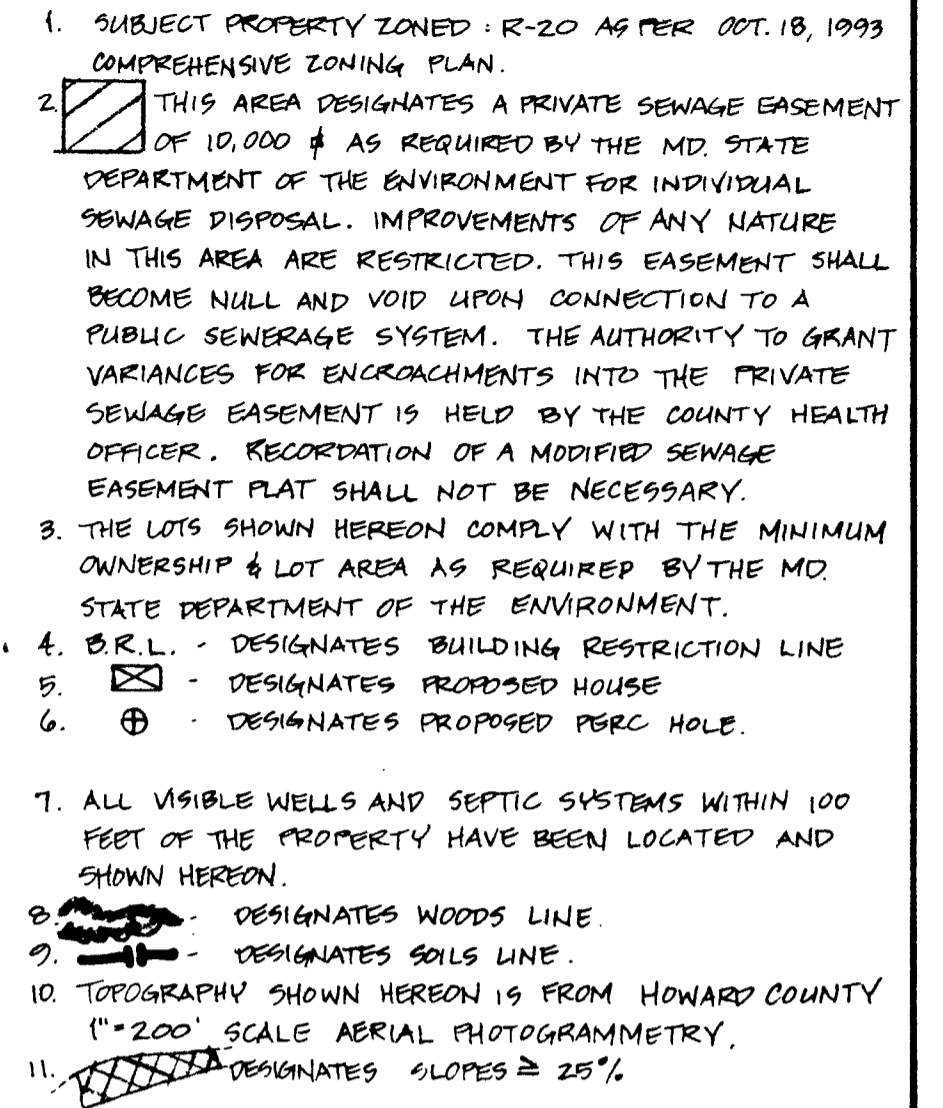 1. SUBJECT PROPERTY ZONED : R-20 AS PER OCT. 18, 1993
COMPREHENSIVE ZONING PLAN.
2. THIS AREA DESIGNATES A PRIVATE SEWAGE EASEMENT
OF 10,000 ⌀ AS REQUIRED BY THE MD. STATE
DEPARTMENT OF THE ENVIRONMENT FOR INDIVIDUAL
SEWAGE DISPOSAL. IMPROVEMENTS OF ANY NATURE
IN THIS AREA ARE RESTRICTED. THIS EASEMENT SHALL
BECOME NULL AND VOID UPON CONNECTION TO A
PUBLIC SEWERAGE SYSTEM. THE AUTHORITY TO GRANT
VARIANCES FOR ENCROACHMENTS INTO THE PRIVATE
SEWAGE EASEMENT IS HELD BY THE COUNTY HEALTH
OFFICER. RECORDATION OF A MODIFIED SEWAGE
EASEMENT PLAT SHALL NOT BE NECESSARY.
3. THE LOTS SHOWN HEREON COMPLY WITH THE MINIMUM
OWNERSHIP & LOT AREA AS REQUIRED BY THE MD.
STATE DEPARTMENT OF THE ENVIRONMENT.
4. B.R.L. - DESIGNATES BUILDING RESTRICTION LINE
5. - DESIGNATES PROPOSED HOUSE
6. - DESIGNATES PROPOSED PERC HOLE.
7. ALL VISIBLE WELLS AND SEPTIC SYSTEMS WITHIN 100
FEET OF THE PROPERTY HAVE BEEN LOCATED AND
SHOWN HEREON.
8. - DESIGNATES WOODS LINE.
9. - DESIGNATES SOILS LINE.
10. TOPOGRAPHY SHOWN HEREON IS FROM HOWARD COUNTY
1"=200' SCALE AERIAL PHOTOGRAMMETRY.
11. DESIGNATES SLOPES ≥ 25%